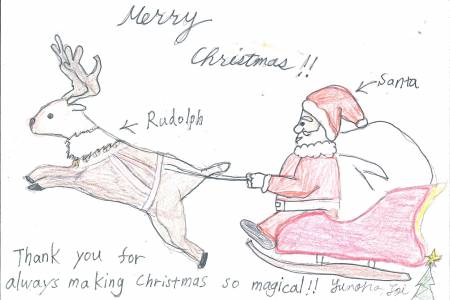 Merry
Christmas!!
Santa
Rudolph
Thank you for
always making Christmas so magical!!